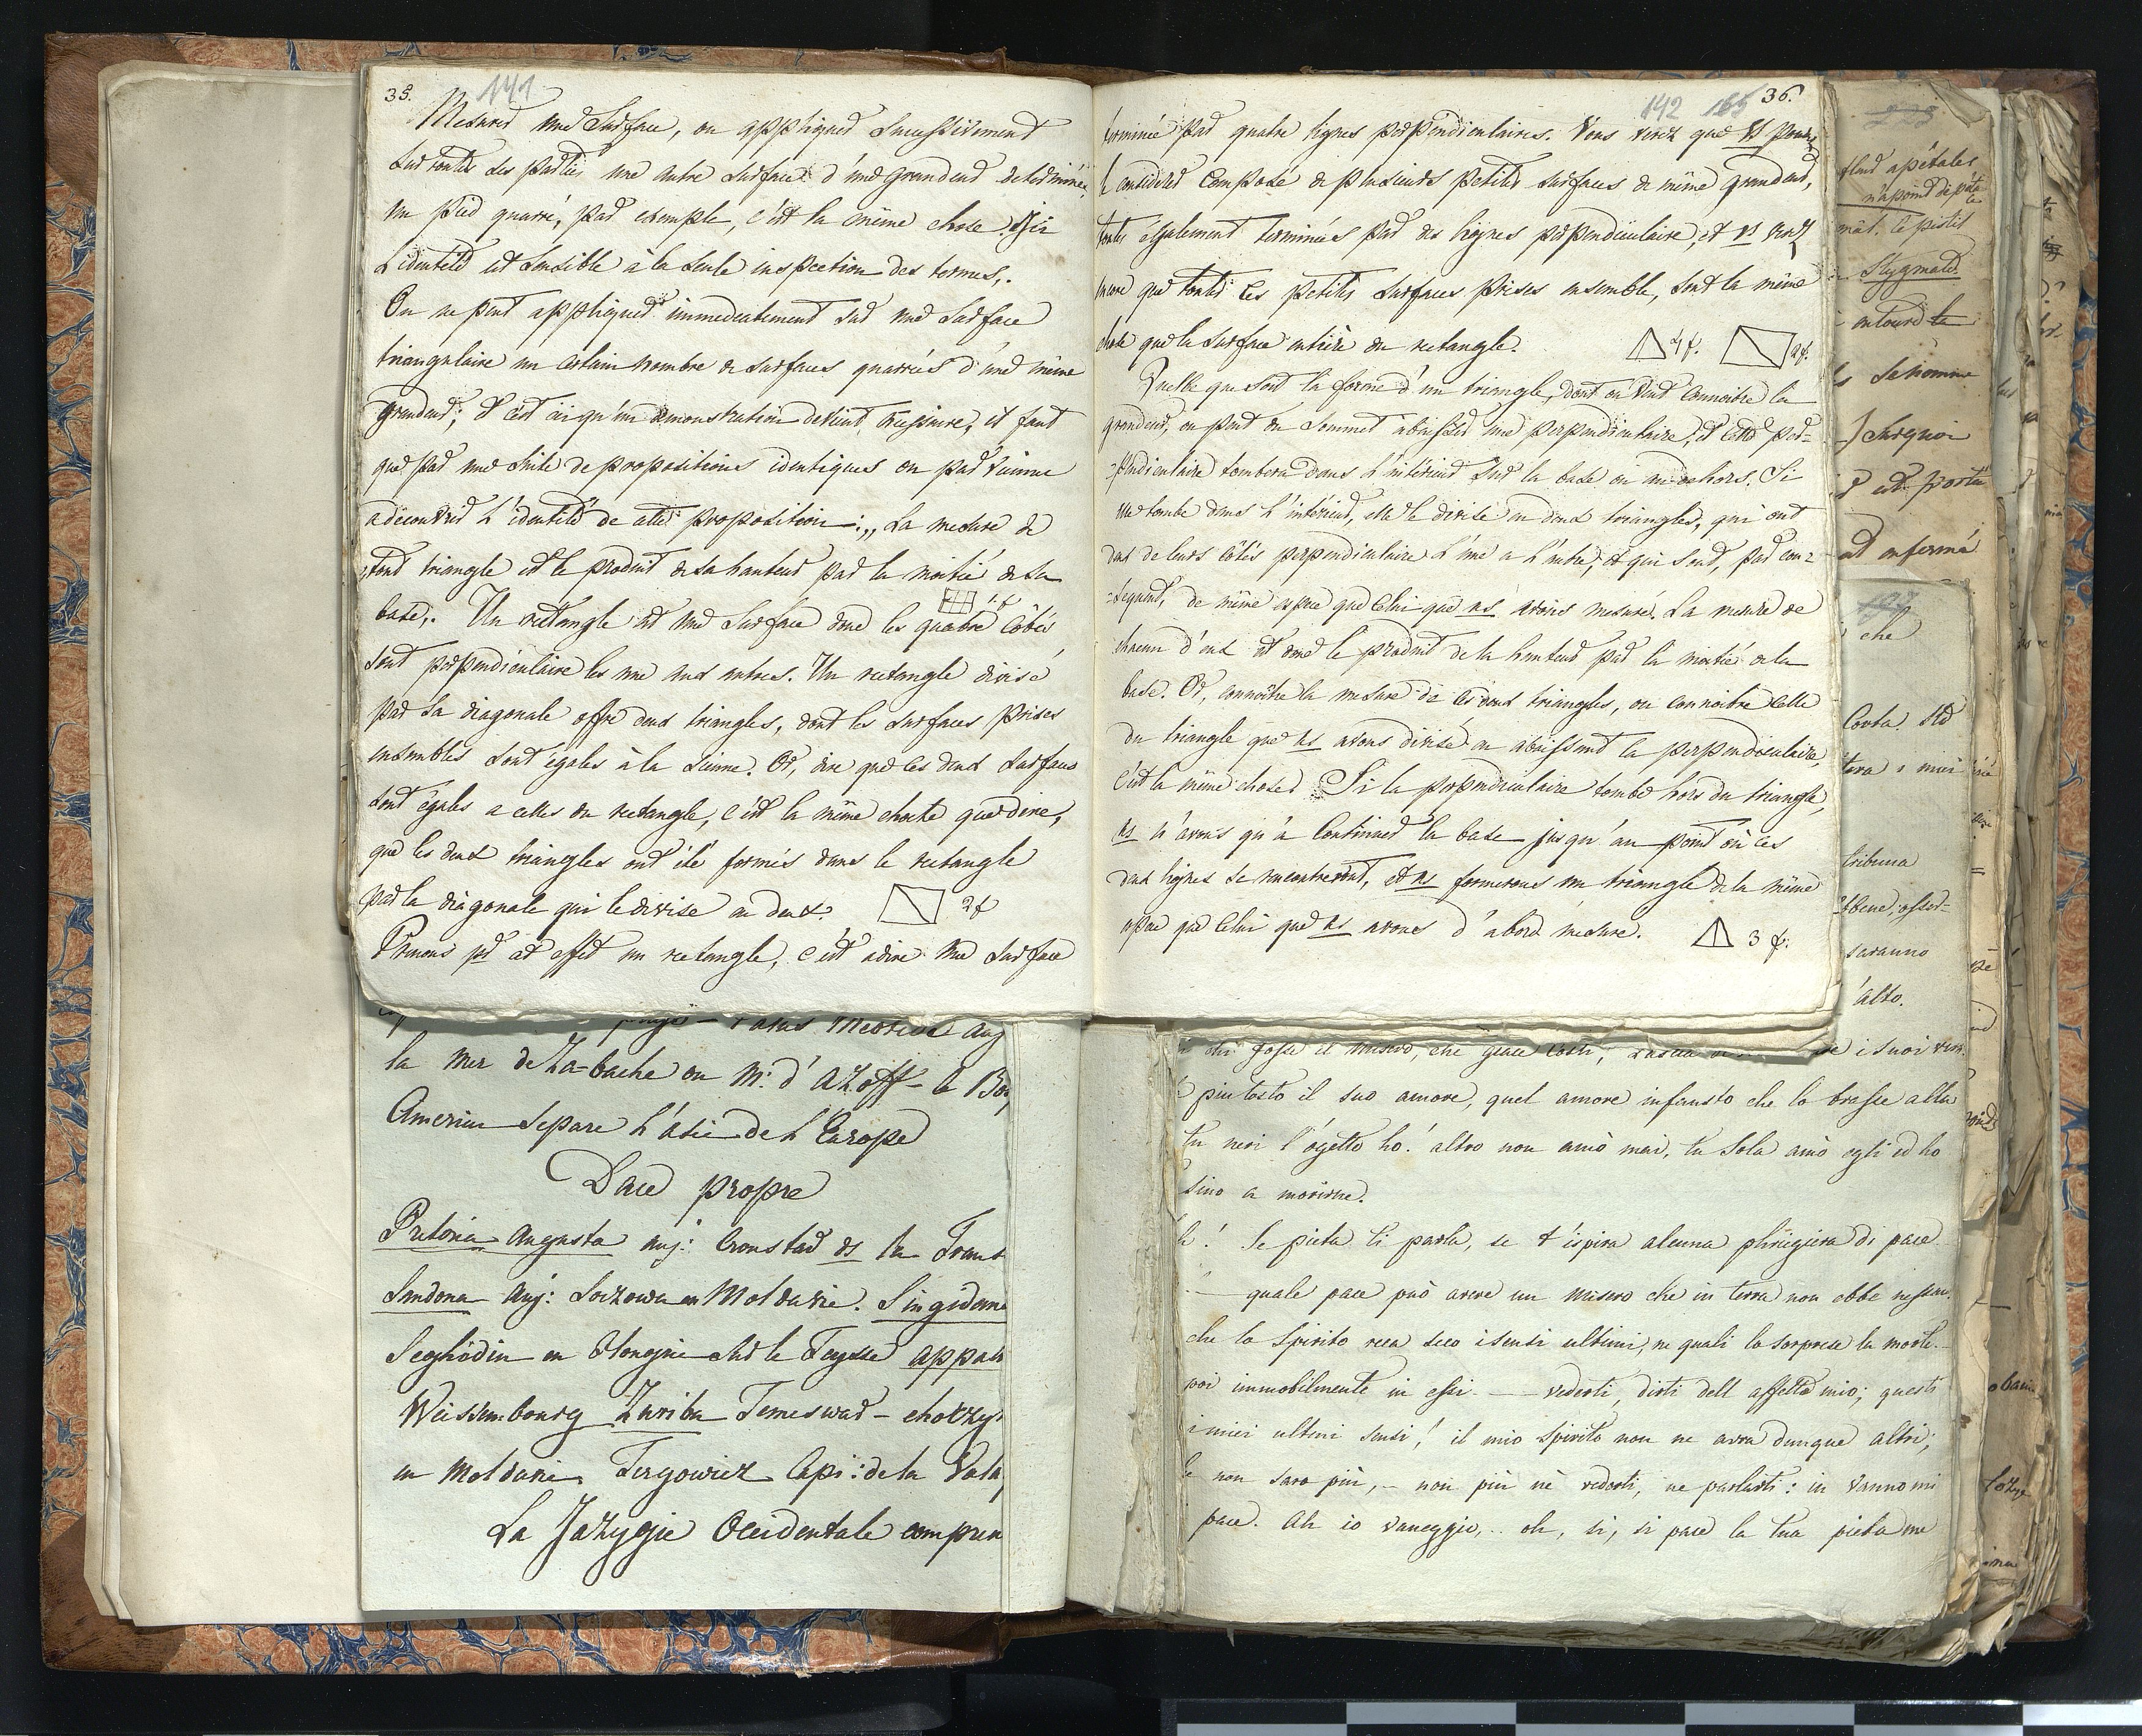 35. 141
Mesurer une Surface, ou appliquer Successivement
Sur toutes ses parties une autre surface d'une grandeur determinée,
un pied quarré, par exemple, c'est la même chose. Ici
L'identité est sensible à la seule inspection des termes,.
On ne peut appliquer immediatement sur une Surface
triangulaire un certain nombre de surfaces quarrées d'une même
grandeur; et c'est ici qu'un demonstration devient necessaire, il faut
que par une suite de propositions identiques on parvienne
a découvrir L'identité de cette proposition :,, La mesure de
,,tout triangle est le produit de sa hauteur par la moitié de sa
base,. Un rectangle est une Surface dont les quatre Côtés
1. f
sont perpendiculaire les une aux autres. Un rectangle divisé
par sa diagonale offre deux triangles, dont les surfaces prises
ensembles sont égales à la sienne. Or, dire que ces deux surfaces
sont égales a celles du rectangle, c'est la même chose que dire,
que les deux triangles ont été formés dans le rectangle
par la diagonale qui le divise en deux. 2 f
Prenons pr cet effet un rectangle, c'est a dire une Surface
142 165 36.
terminée par quatre lignes perpendiculaires. Vous verez que vs pouvez
le considerer Composé de plusieurs petites surfaces de même grandeur,
toutes également terminées par des lignes perpendiculaire, et vs verez
encore que toutes ces petites surfaces prises ensemble, sont la même
chose que la surface entière du rectangle. 4 f. 2 f.
Quelle que soit la forme d'un triangle, dont on veut Connoitre la
grandeur, on peut du Sommet abaisser une perpendiculaire, et cette per-
-pendiculaire tombera dans L'intérieur sur la base ou au dehors. Si
elle tombe dans L'intérieur, elle le divise en deux triangles, qui ont
deux de leurs Côtés perpendiculaire L'une a L'autre, et qui sont, par con-
-sequent, de même espece que Celui que ns avons mesuré. La mesure de
chacun d'eux est donc le produit de la hauteur par la moitié de la
base. Or, connoitre la mesure de ces deux triangles, ou connoitre celle
du triangle que ns avons divisé en abaissant la perpendiculaire,
c'est la même chose. Si la perpendiculaire tombe hors du triangle,
ns n'avons qu'a Continuer la base jusqu'au point où ces
deux lignes se rencontreront, et ns formerons un triangle de la même
espece que Celui que ns avons d'abord mesure. 3 f.
la Mer de Za-bache ou M. d'Azoff - le Bos
Cimerien Separe L'Asie de L'Europe
Dace propre
Pretoria Augusta auj: Cronstad ds la Trans
Sandona Auj: Soczowa en Moldavie. Singidana
Seghedin en Hongrie sur le Teysse appars
Weissembourg Zuriba Temeswar - chotzy
en Moldavie, Tergowiez Capi: de la Vala
La Jazygie Occidentale compren
piu tosto il suo amore, quel amore infausto che lo trasse alla
tu neri l'ogetto ho! altro non amò mai, tu sola amò egli ed ho
sino a morirne.
Se pieta ti parla, se t'ispira alcuna phregiera di pace
quale pace può avere un misero che in terra non ebbe nessun.
che lo Spirito reca seco i sensi ultimi, ne quali lo sorprese la morte.
poi immobilmente in essi — vederti, dirti dell affetto mio; questi
i miei ultimi sensi! il mio Spirito non ne avra dunque altri;
non saro più, - non più nè vederti, ne parlarti: in vanno mi
pace. Ah io vaneggio,.. oh, si, si pace la tua pieta me
flour apétales
le pistil
Stygmate
entouré
Sehomme
Surquoi
est porté
est enfermé
che
tribuna
saranno
alto.